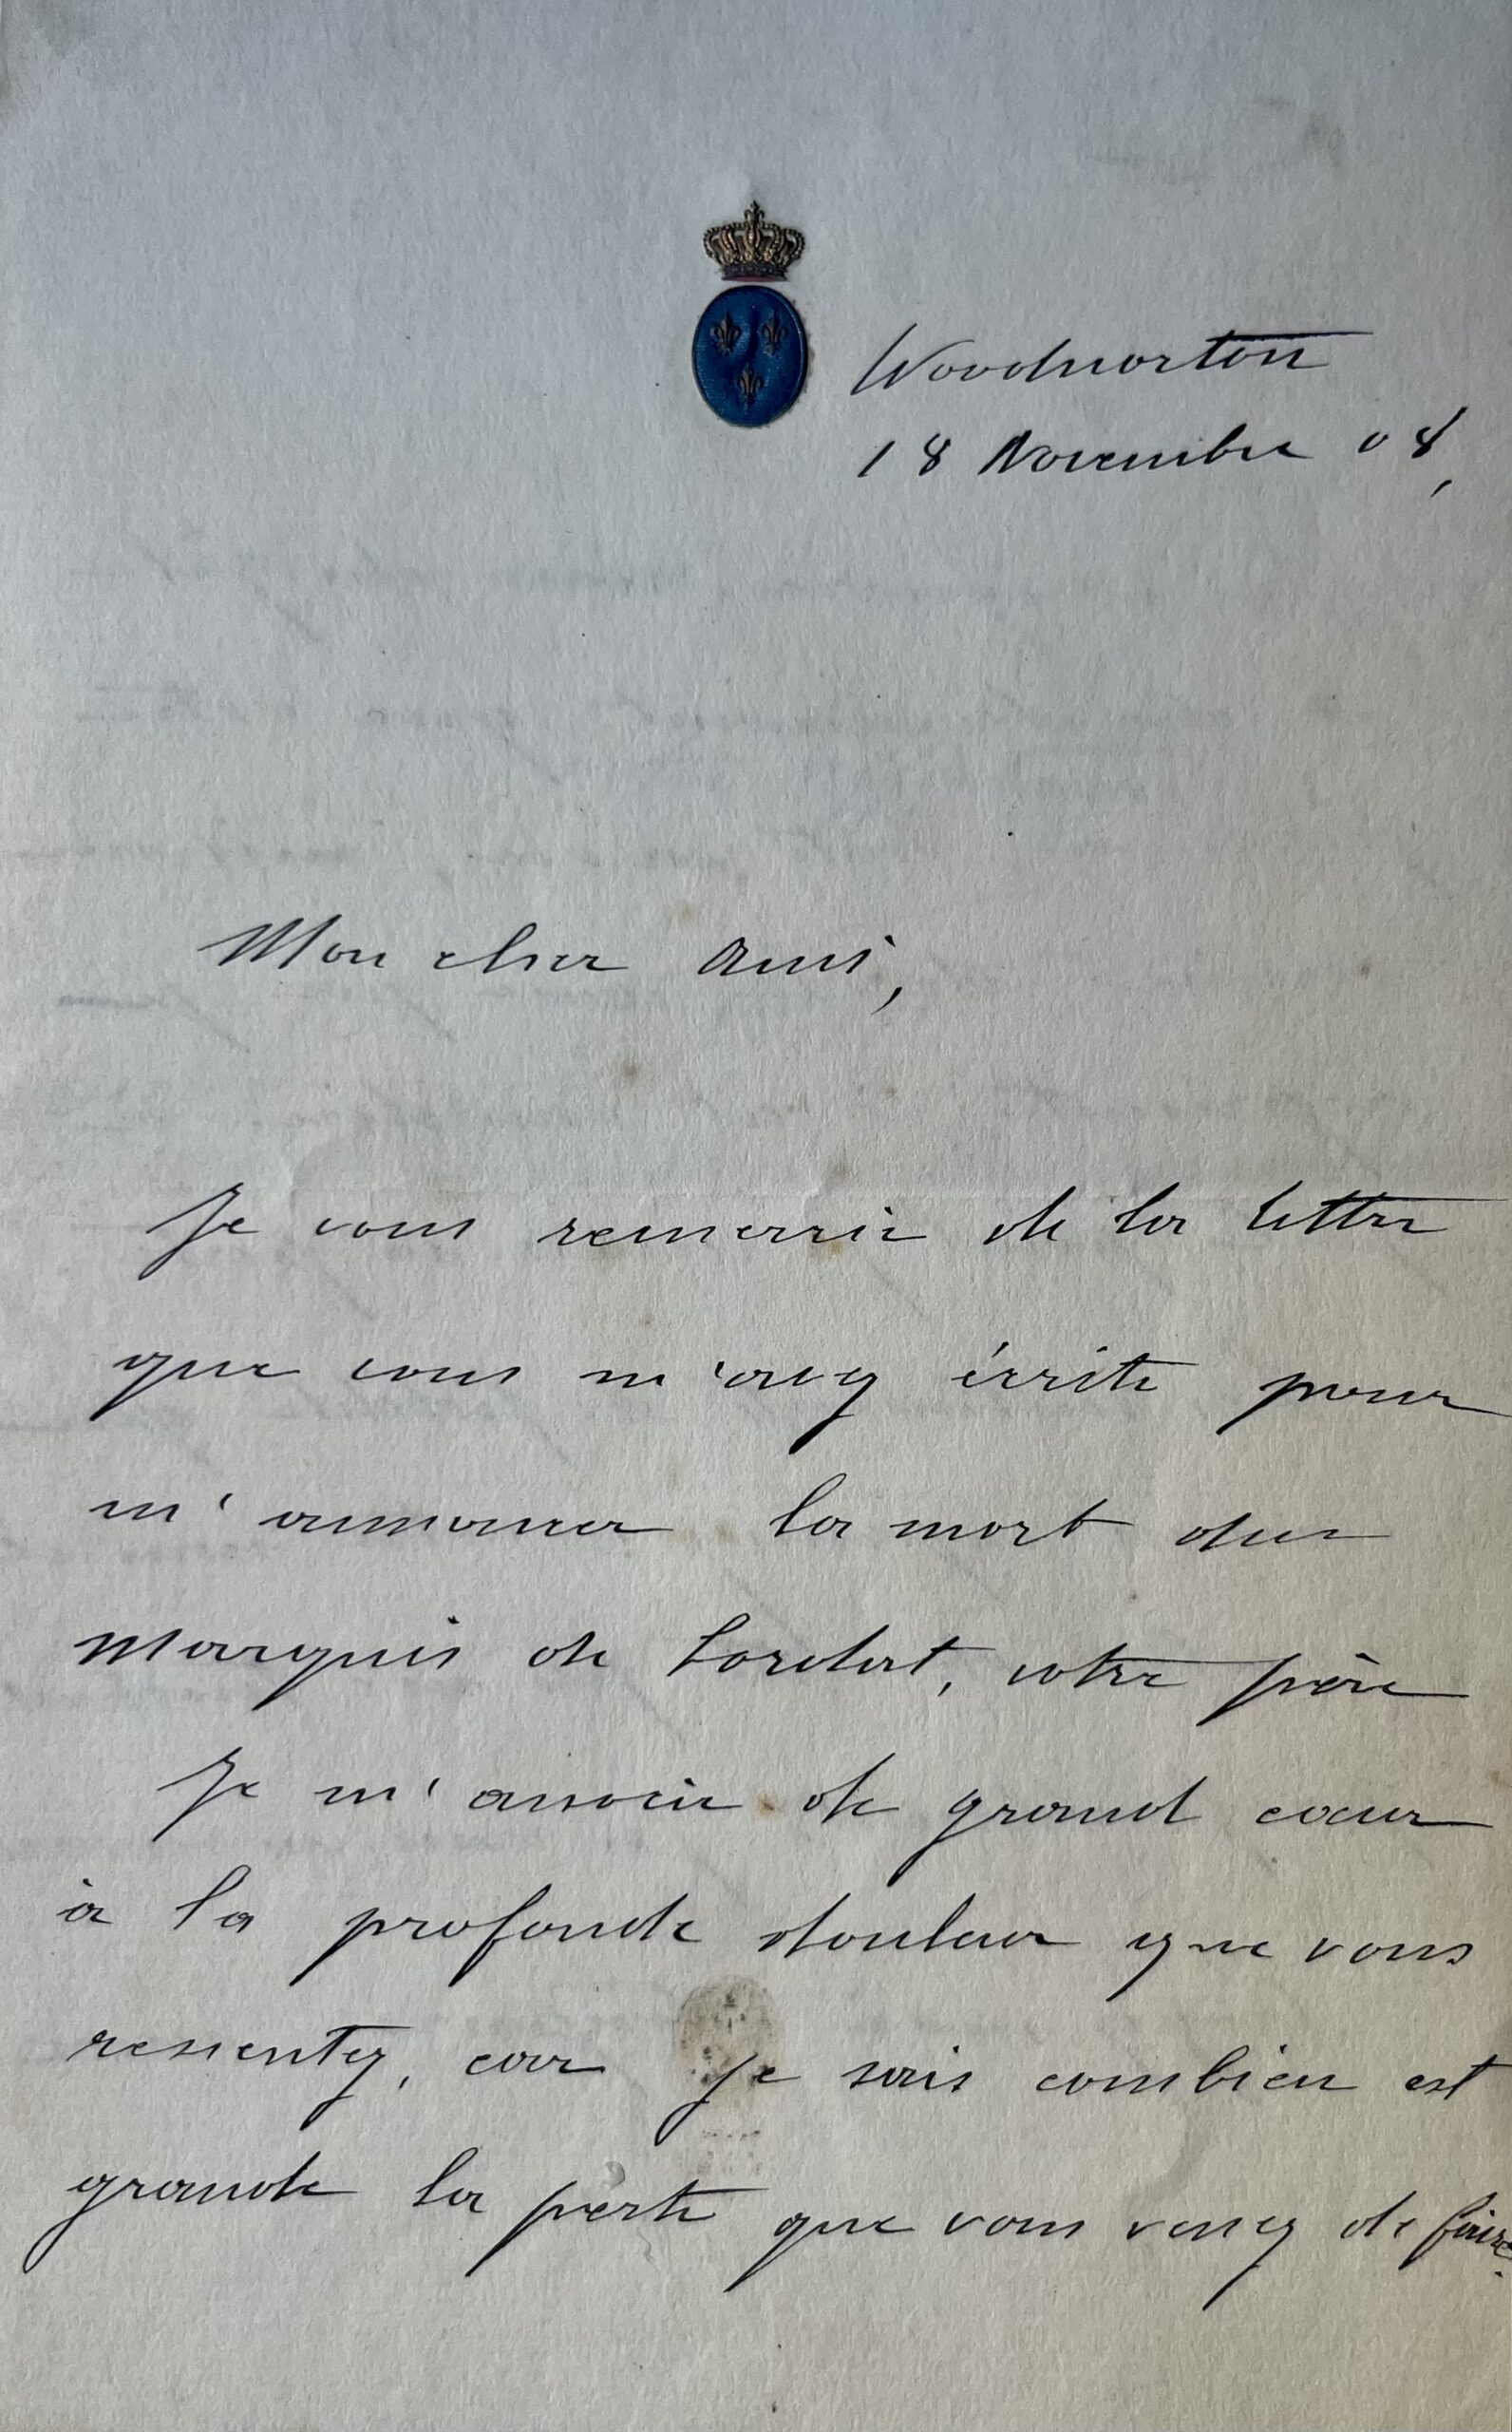 Woodnorton
18 Novembre 08,
Mon cher Ami,
Je vous remercie de la lettre
que vous m'avez écrite pour
m'annoncer la mort du
Marquis de Lordat, votre père
Je m'associe de grand cœur
à la profonde douleur que vous
ressentez, car je sais combien est
grande la perte que vous venez de faire.